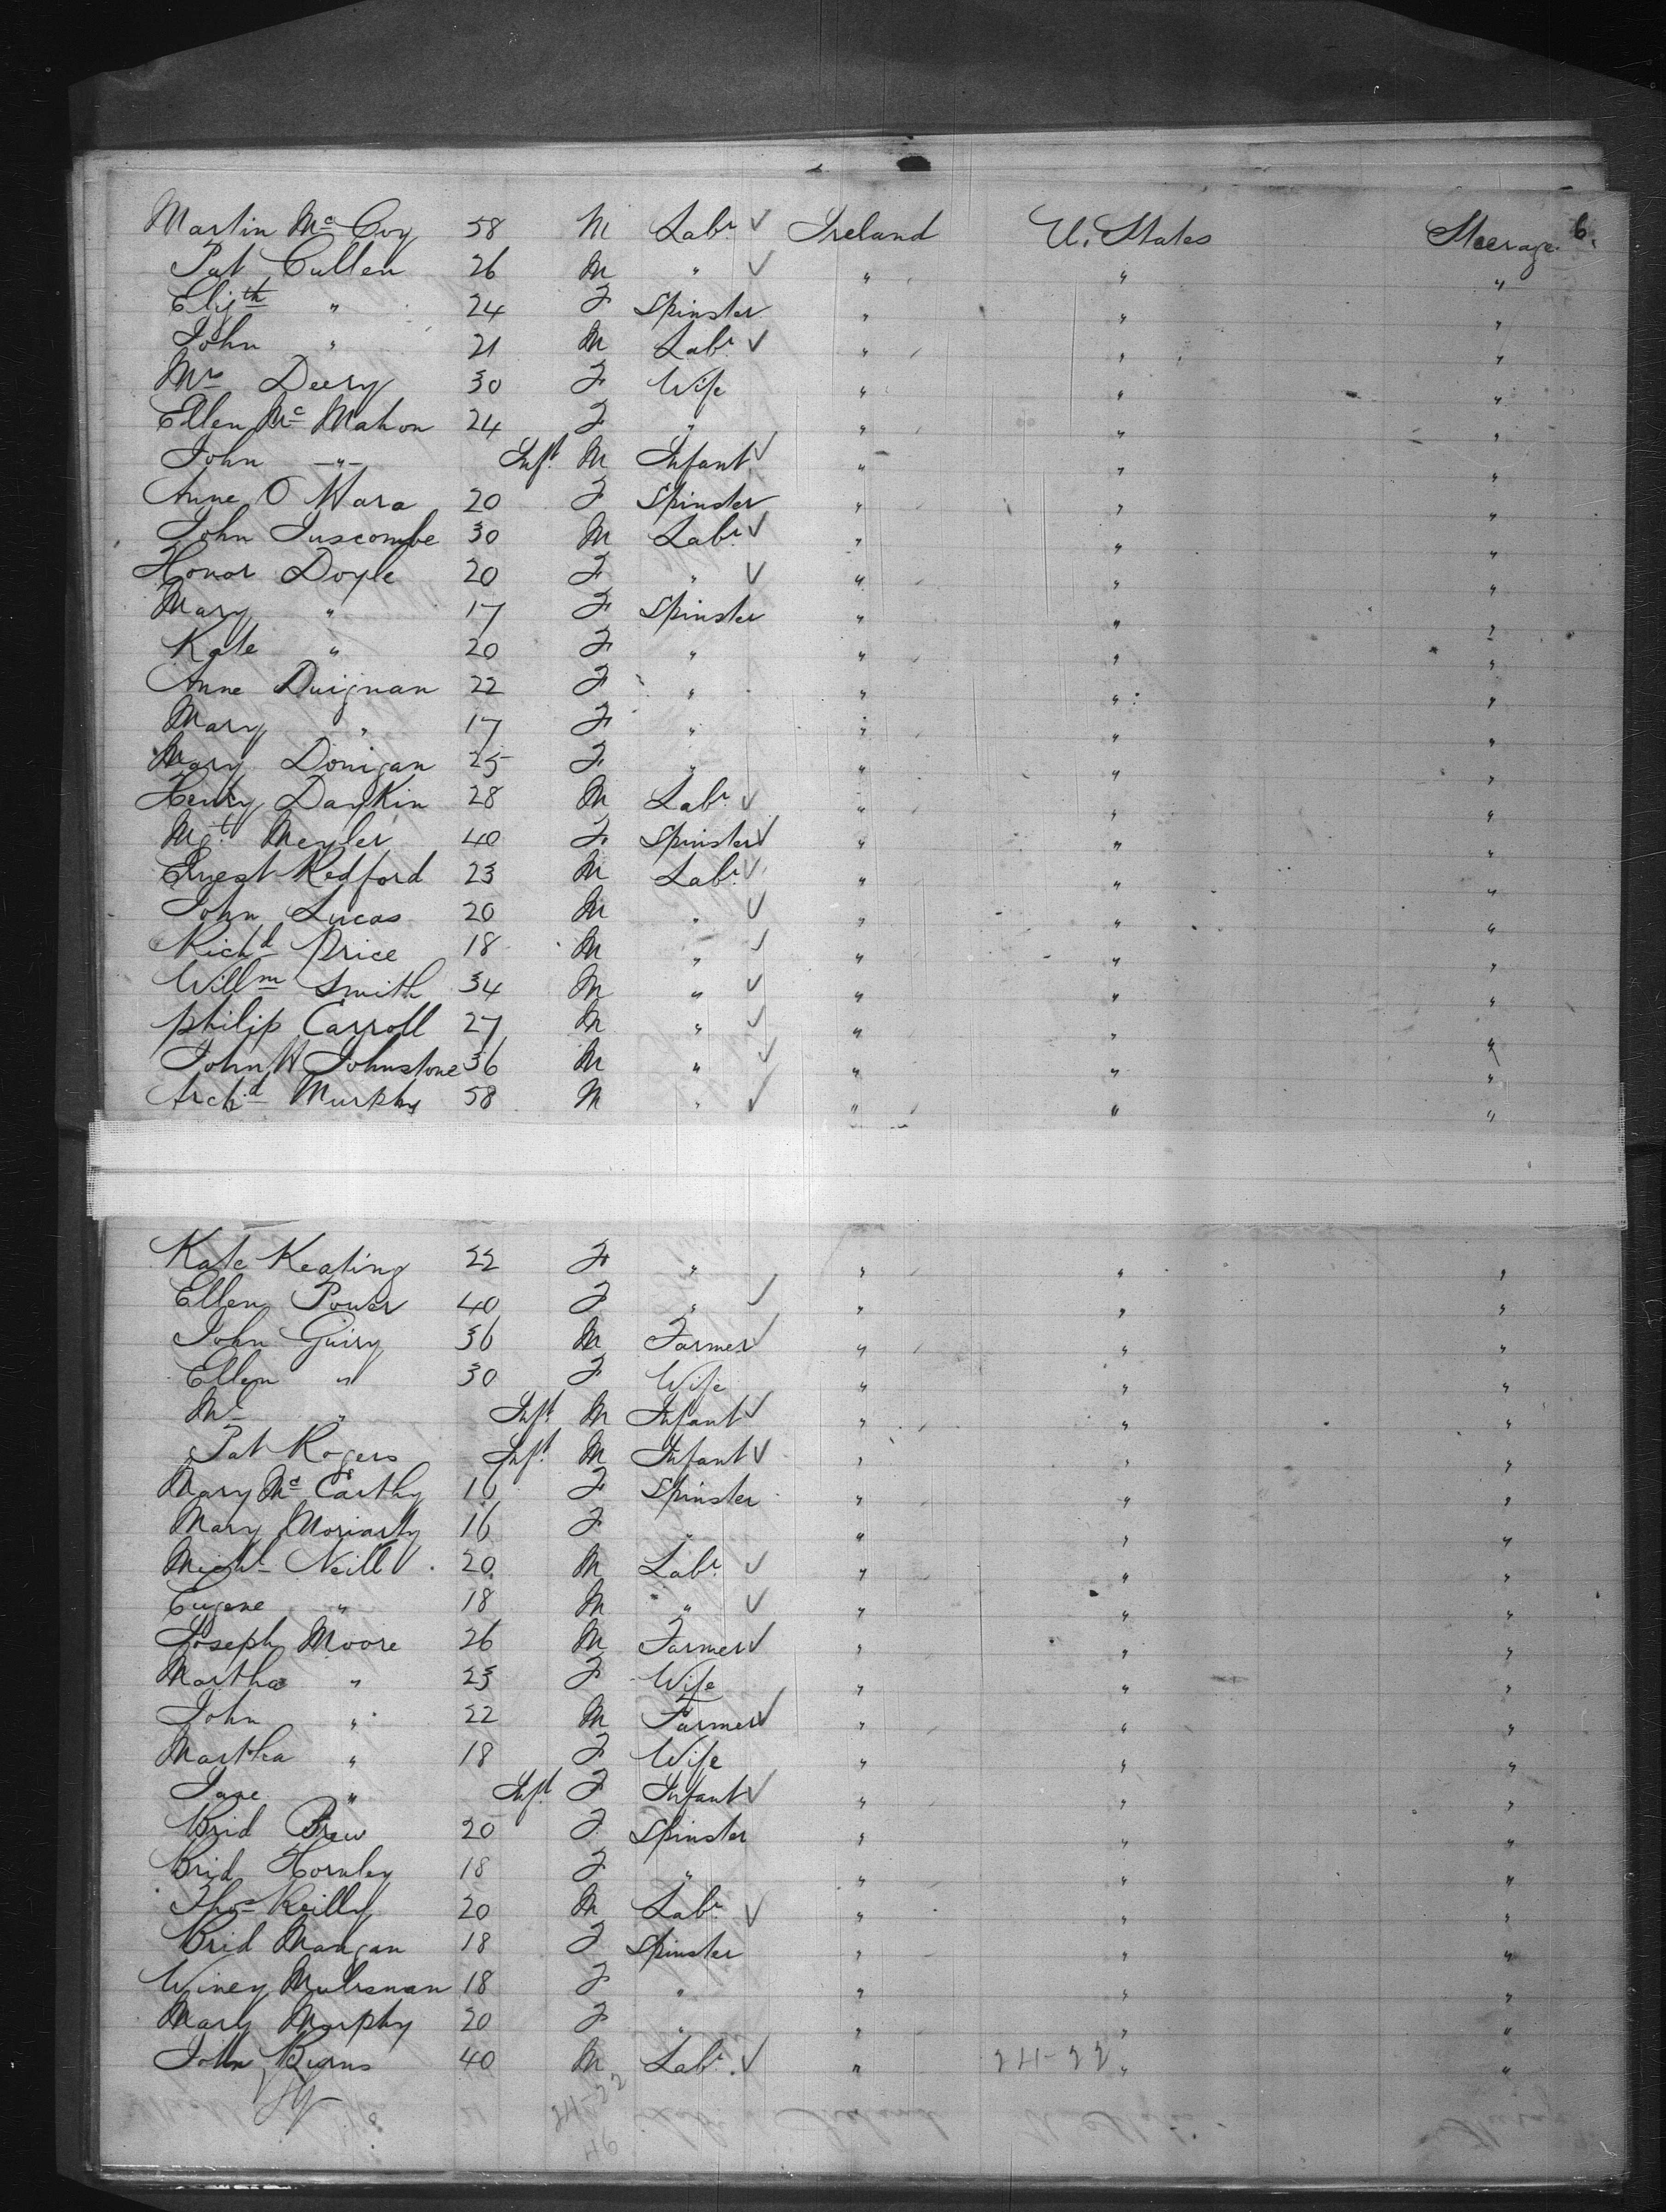 6.
Martin Mc Coy 58 M Labr ✓ Ireland U. States Steerage
Pat Cullen 26 M " ✓ " " "
Elizth " 24 F Spinster " " "
John " 21 M Labr ✓ " " "
Mrs Deery 30 F Wife " " "
Ellen Mc Mahon 24 F " " " "
John -"- Inft. M Infant ✓ " " "
Anne O Hara 20 F Spinster " " "
John Luscombe 30 M Labr ✓ " " "
Honor Doyle 20 F " ✓ " " "
Mary " 17 F Spinster " " "
Kate " 20 F " " " "
Anne Duignan 22 F " " " "
Mary " 17 F " " " "
Mary Donigan 25 F " " " "
Henry Daykin 28 M Labr ✓ " " "
Mgt. Meyler 40 F Spinster ✓ " " "
Ernest Redford 23 M Labr ✓ " " "
John Lucas 20 M " ✓ " " "
Richd Price 18 M " ✓ " " "
Willm Smith 34 M " ✓ " " "
Philip Carroll 27 M " ✓ " " "
John H Johnstone 36 M " ✓ " " "
Archd Murphy 58 M " ✓ " " "
Kate Keating 22 F " " " "
Ellen Power 40 F " ✓ " " "
John Guiry 36 M Farmer ✓ " " "
Ellen " 30 F Wife " " "
Ml " Inft. M Infant ✓ " " "
Pat Rogers Inft. M Infant ✓ " " "
Mary Mc Carthy 16 F Spinster " " "
Mary Moriarty 16 F " " " "
Michl Neill 20 M Labr ✓ " " "
Eugene " 18 M " ✓ " " "
Joseph Moore 26 M Farmer ✓ " " "
Martha " 23 F Wife " " "
John " 22 M Farmer ✓ " " "
Martha " 18 F Wife " " "
Jane " Inft. F Infant ✓ " " "
Brid Brew 20 F Spinster " " "
Brid Hornley 18 F " " " "
Thos Reilly 20 M Labr ✓ " " "
Brid Mangan 18 F Spinster " " "
Winey 18 F " " " "
Mary Murphy 20 F " " " "
John Burns 40 M Labr. ✓ " " "
24-22
46